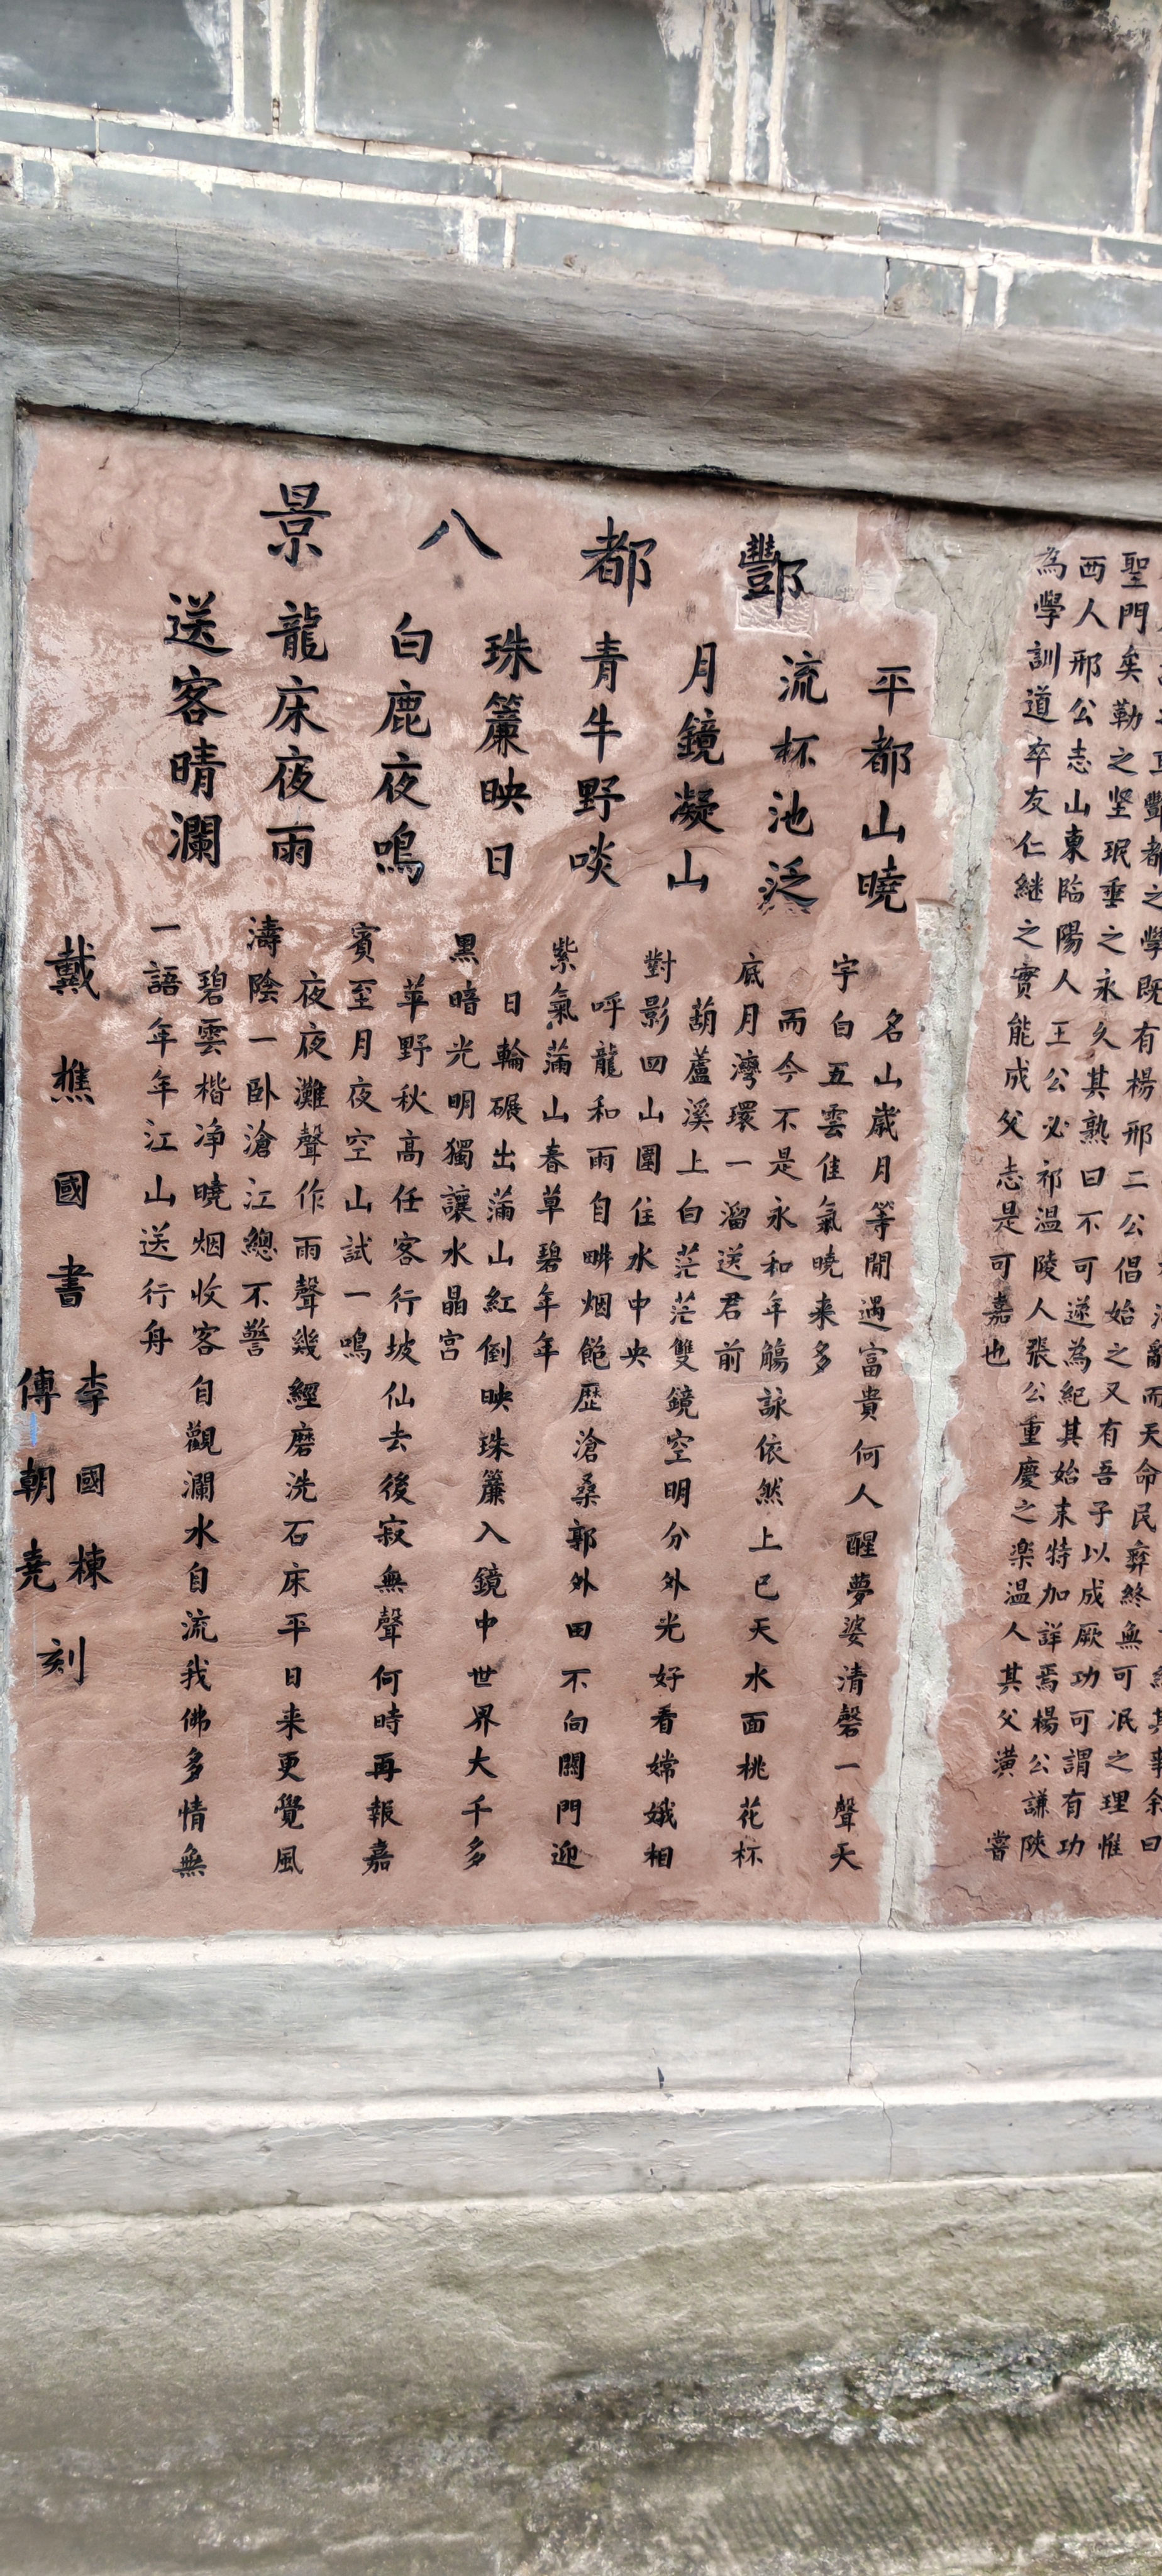 豐都之學既有楊邢二公倡始之又有吾子以成厥功可謂有功
聖門矣勒之坚珉垂之永久其熟曰不可遂為紀其始末特加詳焉楊公謙陝
西人邢公志山東臨陽人王公必祁温陵人張公重慶之楽温人其父潢嘗
為學訓道卒友仁継之實能成父志是可嘉也
而天命民彝終無可泯之理惟
酆都八景
平都山曉
名山歲月等閒遇富貴何人醒夢婆清磬一聲天
宇白五雲佳氣曉来多
流杯池泛
而今不是永和年觴詠依然上巳天水面桃花杯
底月灣環一溜送君前
月鏡凝山
葫蘆溪上白茫茫雙鏡空明分外光好看嫦娥相
對影四山圍住水中央
青牛野啖
呼龍和雨自畊烟飽歷滄桑郭外田不向關門迎
紫氣蒲山春草碧年年
珠簾映日
日輪碾出蒲山紅倒映珠簾入鏡中世界大千多
黑暗光明獨讓水晶宮
白鹿夜鳴
苹野秋高任客行坡仙去後寂無聲何時再報嘉
賓至月夜空山試一鳴
龍床夜雨
夜夜灘聲作雨聲幾經磨洗石床平日来更覺風
濤陰一卧滄江總不警
送客晴瀾
碧雲楷净曉烟收客自觀瀾水自流我佛多情無
一語年年江山送行舟
戴樵國書
李國棟
傅朝堯
刻